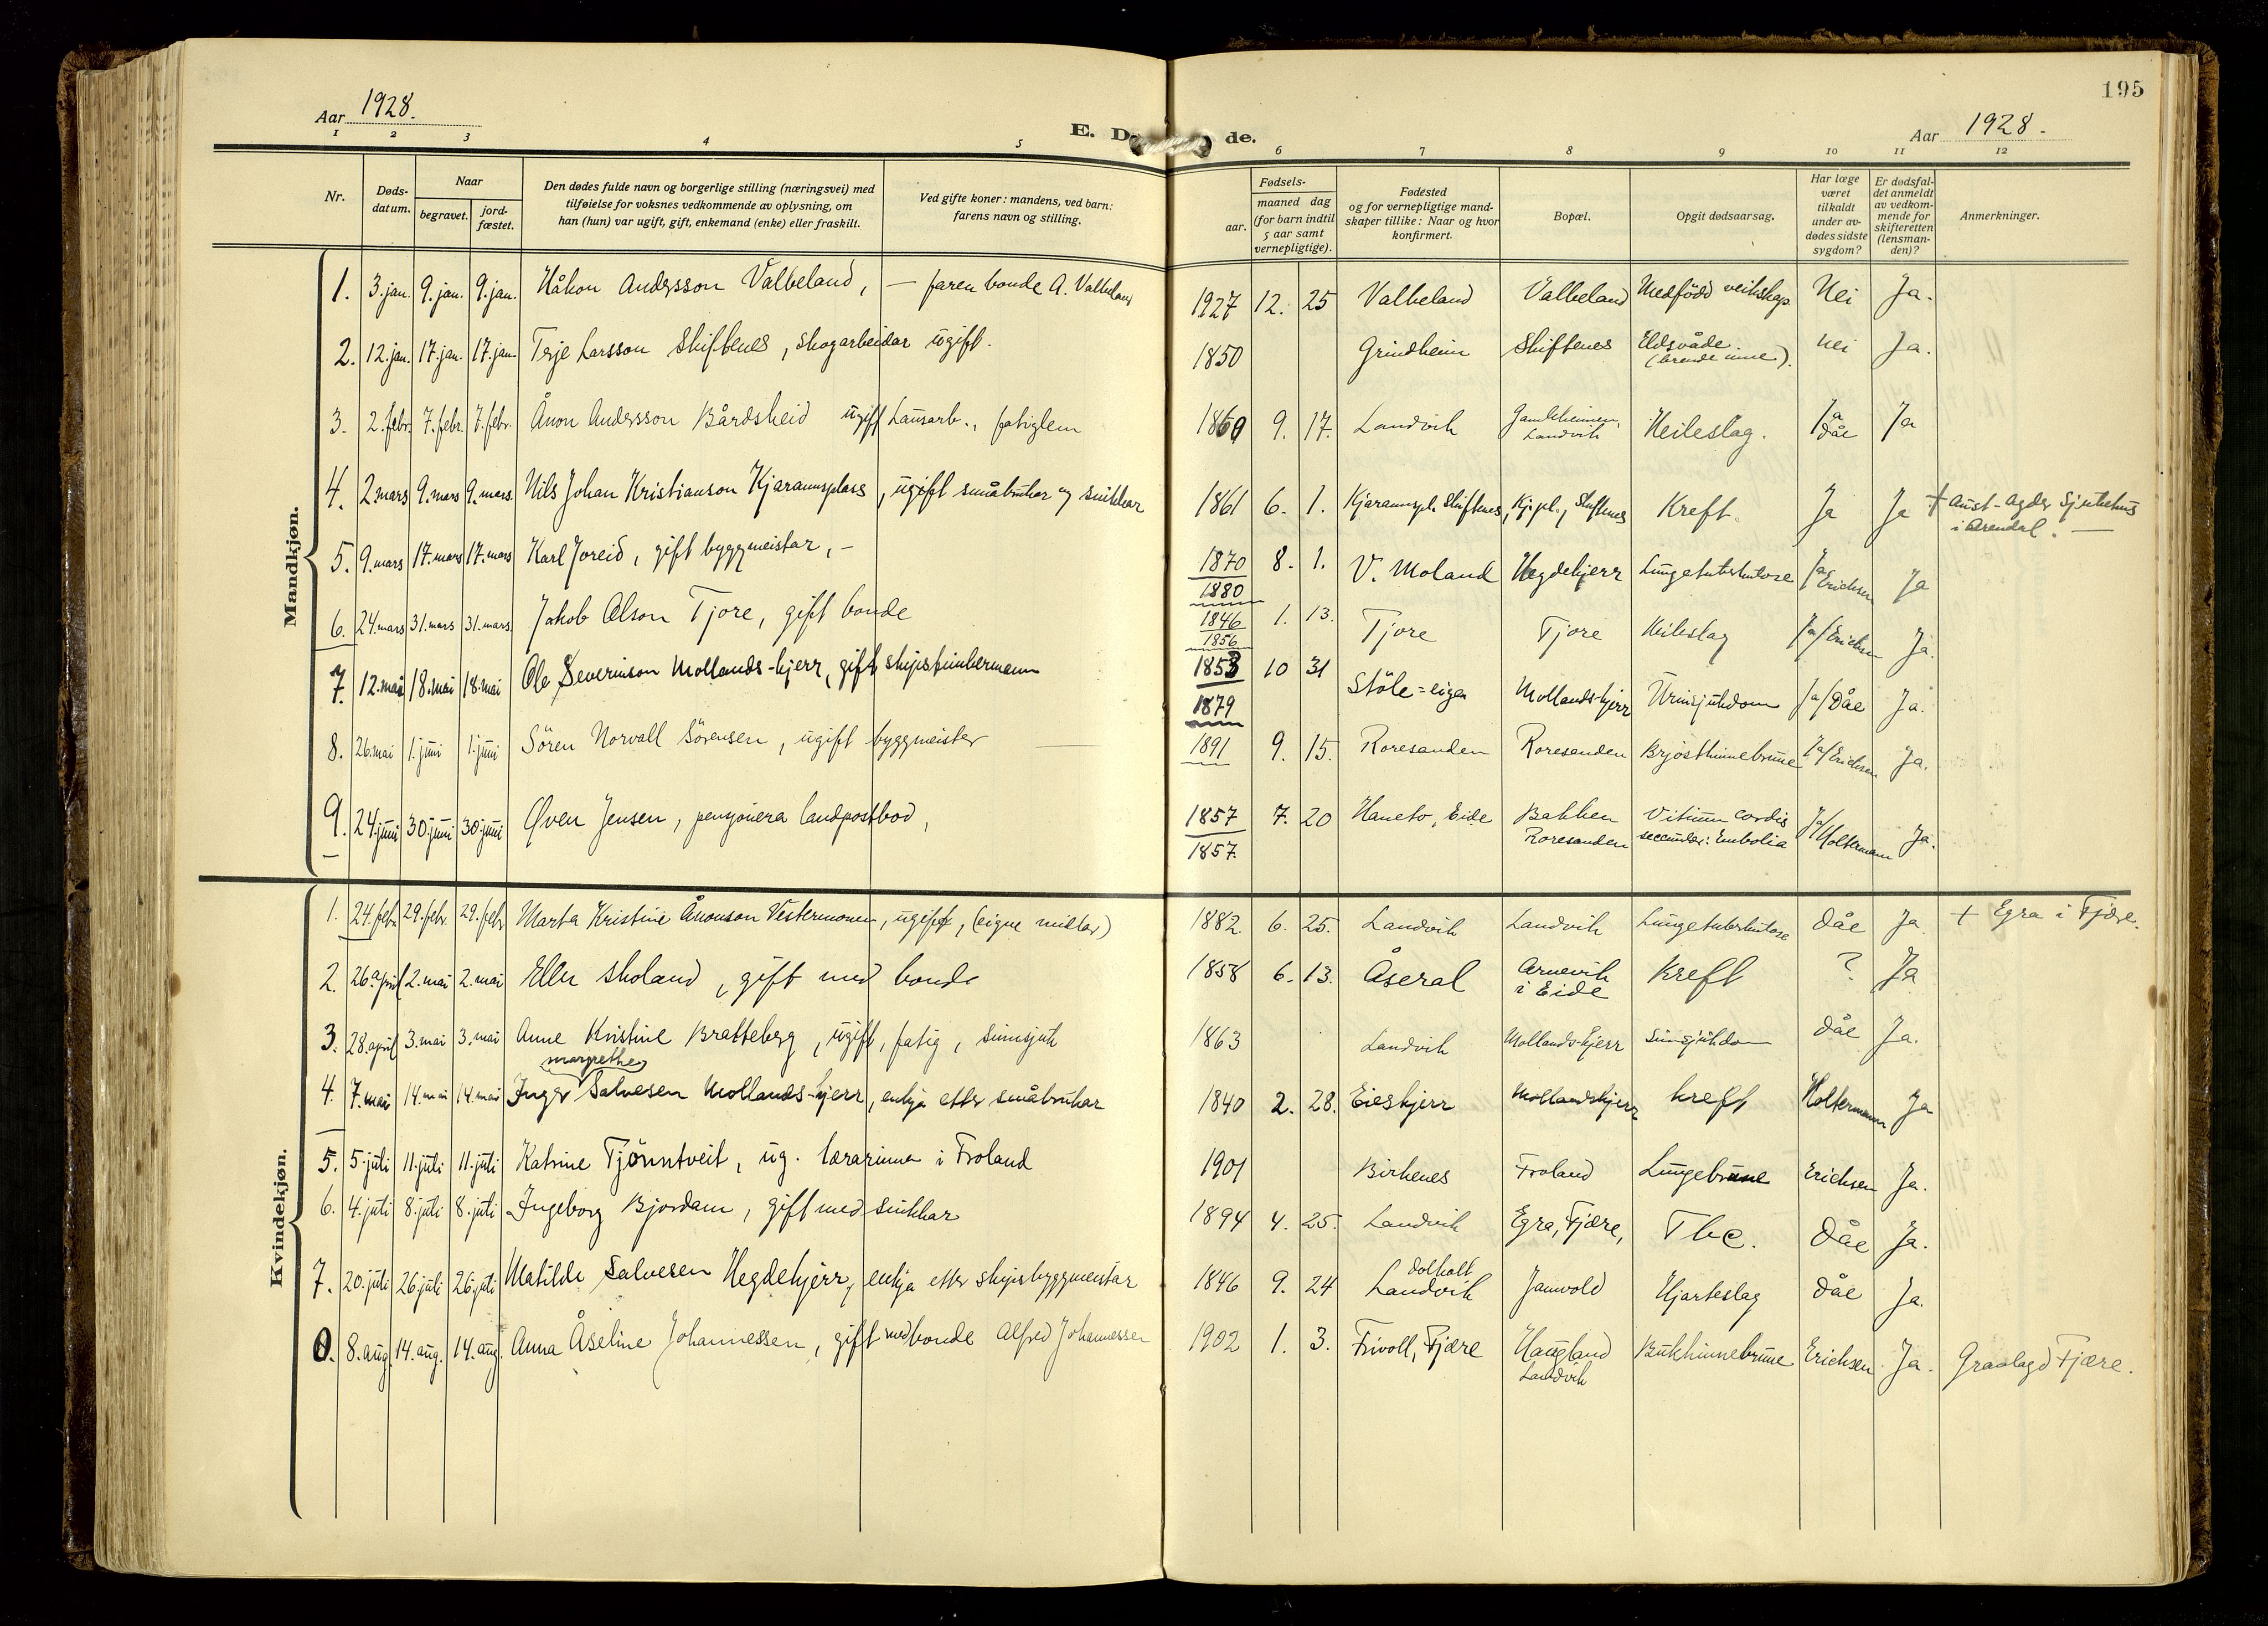 195
Aar 1928.
E. D de.
Aar 1928.
1 2 3 4 5 6 7 8 9 10 11 12
Nr.
Døds-
datum.
Naar
begravet.
jord-
fæstet.
Den dødes fulde navn og borgerlige stilling (næringsvei) med
tilføielse for voksnes vedkommende av oplysning, om
han (hun) var ugift, gift, enkemand (enke) eller fraskilt.
Ved gifte koner: mandens, ved barn:
farens navn og stilling.
Fødsels-
aar.
maaned dag
(for barn indtil
5 aar samt
vernepligtige).
Fødested
og for vernepligtige mand-
skaper tillike: Naar og hvor
konfirmert.
Bopæl.
Opgit dødsaarsag.
Har læge
været
tilkaldt
under av-
dødes sidste
sygdom?
Er dødsfal-
det anmeldt
av vedkom-
mende for
skifteretten
(lensman-
den)?
Anmerkninger.
Mandkjøn.
1. 3. jan. 9. jan. 9. jan. Håkon Andersson Valbeland, — faren bonde A. Valbeland 1927 12. 25 Valbeland Valbeland Medfödd veikskap Nei Ja.
2. 12. jan. 17. jan. 17. jan. Terje Larsson Skiftenes, skogarbeidar ugift. 1850 Grindheim Skiftenes Eldsvåde. Nei Ja.
(brende inne).
3. 2. febr. 7. febr. 7. febr. Ånon Andersson Bårdsheid ugift Lausarb., fatiglem 1869 9. 17. Landvik Gamleheimen, Heileslag. Ja Ja
Landvik Dåe
4. 2 mars 9. mars 9. mars. Nils Johan Kristianson Kjaramsplass, ugift småbrukar og snikkar 1861 6. 1. Kjaramspl. Skiftenes, Kj.pl., Skiftenes Kreft. Ja Ja + Aust-Agder Sjukehus
i Arendal. —
5. 9. mars 17. mars 17. mars Karl Joreid, gift byggmeistar, - 1870 8. 1. V. Moland Hegdekjerr Lungetuberkulose Ja Erichsen Ja
1880
6. 24. mars 31. mars 31. mars. Jakob Olson Tjore, gift bonde 1846 1. 13. Tjore Tjore Heileslag Ja/Erichsen Ja.
1856
7. 12. mai 18. mai 18. mai Ole Severinson Mollands-kjerr, gift skipstimbermann 1853 10 31 Støle=eigen Mollandskjerr Urinsjukdom Ja/Dåe Ja.
1879
8. 26. mai 1. juni 1. juni Sören Norvall Sörensen, ugift byggmeister 1891 9. 15. Roresanden Roresanden Brjosthinnebrune Ja/Erichsen Ja.
9. 24. juni 30. juni 30. juni Øven Jensen, pensjonera landpostbod, 1857 7. 20 Haneto, Eide Bakken Vitium cordis Ja/Holtermann Ja.
1857. Roresanden seccundær: Embolia
Kvindekjøn.
1. 24. febr. 29. febr. 29. febr Marta Kristine Ånonson Vestermonen, ugift, (eigne midlar) 1882. 6. 25. Landvik Landvik Lungetuberkulose Dåe Ja + Egra i Fjære.
2. 26 april 2. mai 2. mai Ellen Skoland, gift med bonde 1858 6. 13. Åseral Arnevik Kreft ? Ja
i Eide
3. 28. april 3. mai 3. mai Anne Kristine Bratteberg, ugift, fatig, sinnsjuk 1863 Landvik Mollands-kjerr Sinnsjukdom Dåe Ja.
margrethe
4. 7. mai 14. mai 14. mai Inger Salvesen Mollands-kjerr, enkja etter småbrukar 1840 2. 28. Eieskjerr Mollandskjerr kreft Holtermann Ja
5. 5. juli 11. juli 11. juli Katrine Tjönntveit, ug. lærarinna i Froland 1901 Birkenes Froland Lungebrune Erichsen Ja.
6. 4. juli 8. juli 8. juli Ingeborg Bjordam, gift med snikkar 1894 4. 25. Landvik Egra, Fjære, Tbc. Dåe Ja.
Dolholt
7. 20. juli 26. juli 26. juli Matilde Salvesen Hegdekjerr, enkja etter skipsbyggmeistar 1846 9. 24 Landvik Jamvold Hjarteslag Dåe Ja.
8. aug. 14. aug. 14. aug. Anna Åseline Johannessen, gift med bonde Alfred Johannessen 1902 1. 3. Frivoll, Fjære Haugland Bukhinnebrune Erichsen Ja. Gravlagd Fjære.
Landvik